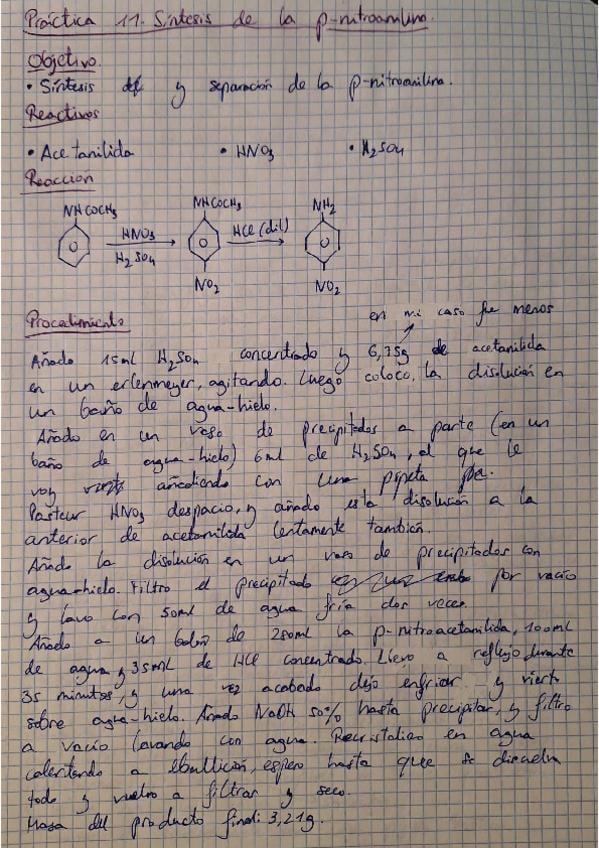 Práctica 11. Síntesis de la p-nitroanilina.
Objetivo.
• Síntesis y separación de la p-nitroanilina.
Reactivos
• Acetanilida • HNO3 • H2SO4
Reacción
NHCOCH3 NHCOCH3 NH2
HNO3 HCl (dil)
H2SO4
NO2 NO2
Procedimiento
en mi caso fue menos
Añado 15ml H2SO4 concentrado y 6,75g de acetanilida
en un erlenmeyer, agitando. Luego coloco, la disolución en
un baño de agua-hielo.
Añado en un vaso de precipitados a parte (en un
baño de agua-hielo) 6ml de H2SO4, al que le
voy añadiendo con una pipeta
Pasteur HNO3 despacio, y añado esta disolución a la
anterior de acetanilida lentamente también.
Añado la disolución en un vaso de precipitados con
agua-hielo. Filtro el precipitado por vacío
y lavo con 50ml de agua fría dos veces.
Añado a un balón de 250ml la p-nitroacetanilida, 100ml
de agua y 35ml de HCl concentrado. Llevo a reflujo durante
35 minutos, y una vez acabado dejo enfriar y vierto
sobre agua-hielo. Añado NaOH 50% hasta precipitar, y filtro
a vacío lavando con agua. Recristalizo en agua
calentando a ebullición, espero hasta que se disuelva
todo y vuelvo a filtrar y seco.
Masa del producto final: 3,21g.